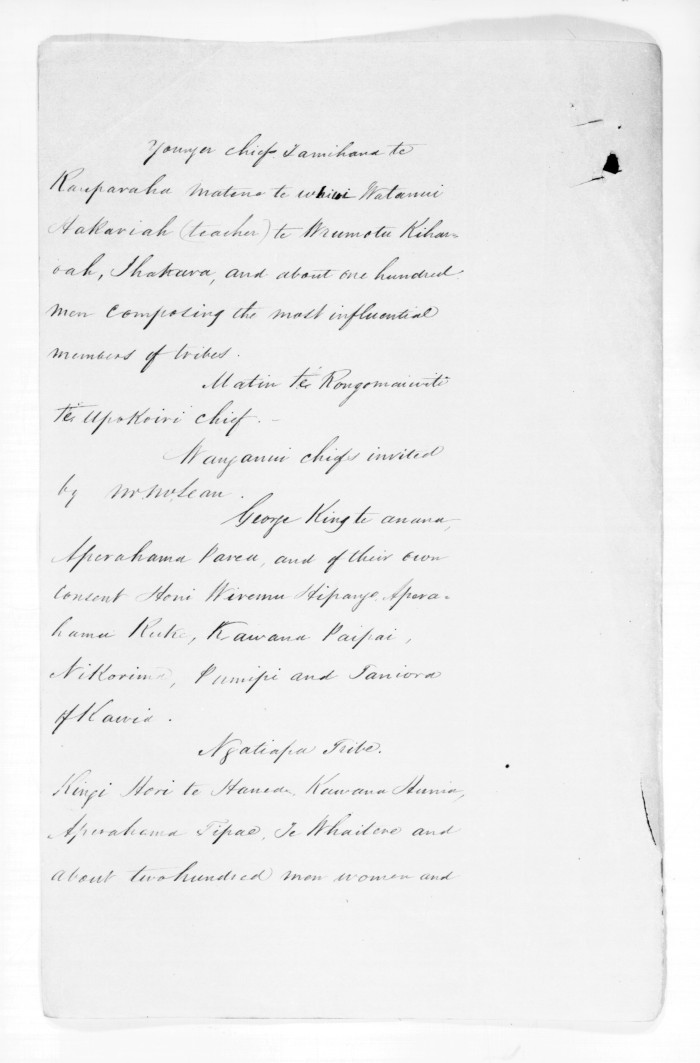 Younger chiefs Tamihana te
Rauparaha Matene te whiwi Watanui
Hakariah (teacher) te Waumotu Kihar=
oah, Ihakara, and about one hundred
men composing the most influential
members of tribes.
Matin te Rongomaiuiti
te upokoiri chief. -
Wanganui chiefs invited
by Mr. McLean.
George King te anaua,
Aperahama Parea, and of their own
consent Honi Wiremu Hipango, Apera=
hama Ruke, Kawana Paipai,
Nikorima, Pumipi and Taniora
of Kawia.
Ngatiapa Tribe.
Kingi Hori te Hanea, Kawana Hunia,
Aperahama Tipae, Te Whaitere and
about two hundred men women and